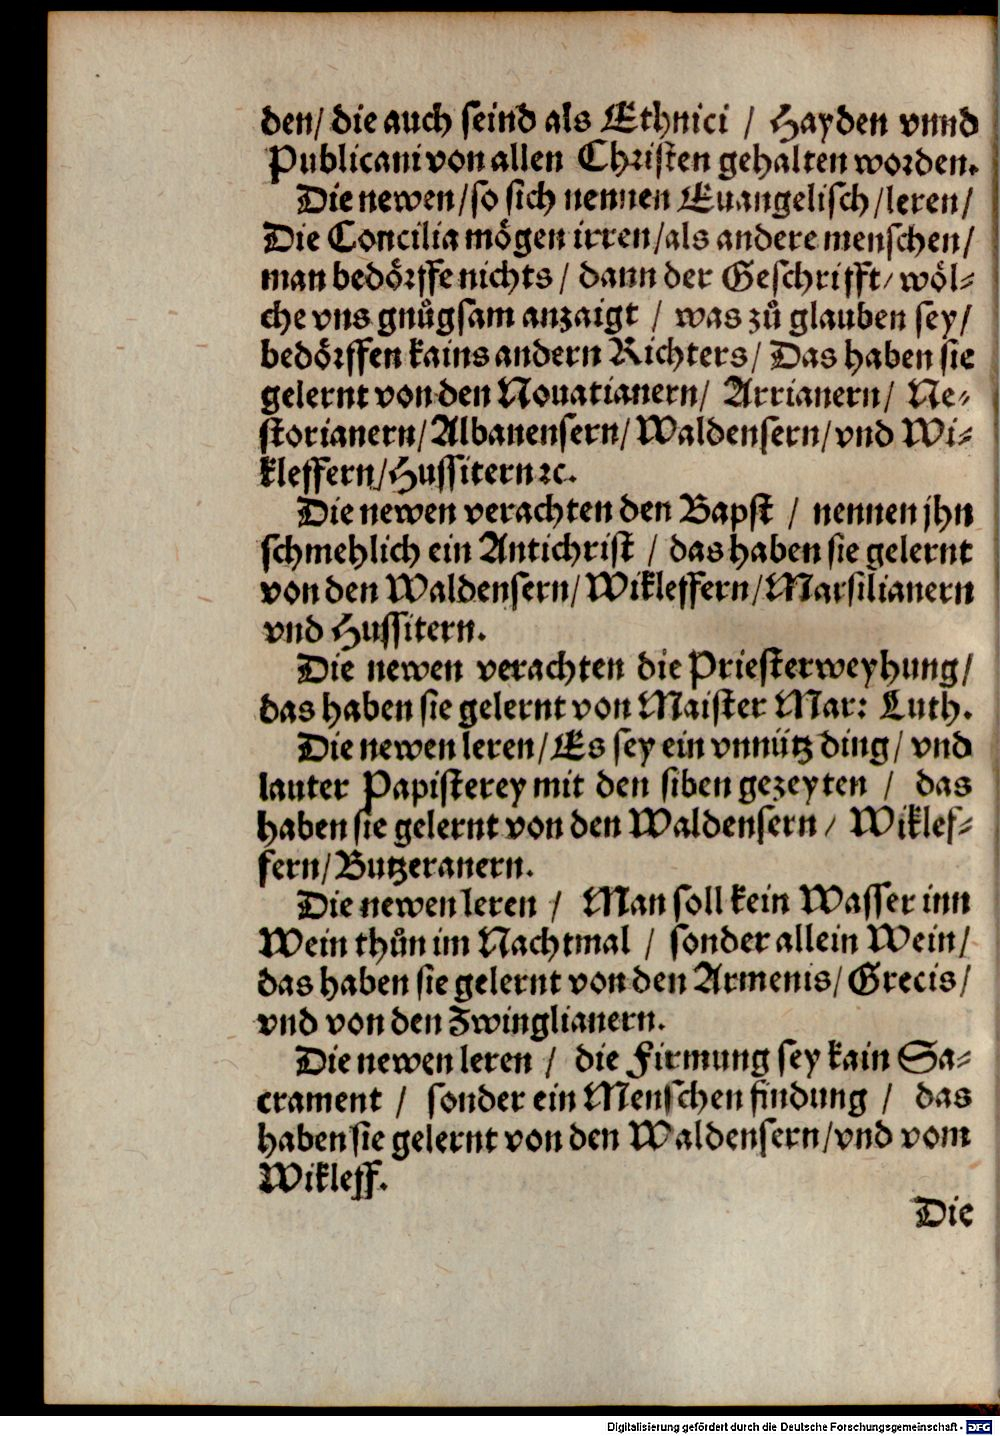 den/ die auch seind als Ethnici / Hayden vnnd
Publicani von allen Christen gehalten worden.
Die newen/ so sich nennen Euangelisch/ leren/
Die Concilia mögen irren/ als andere menschen/
man bedörffe nichts / dann der Geschrifft/ wöl-
che vns gnůgsam anzaigt / was zů glauben sey/
bedörffen kains andern Richters/ Das haben sie
gelernt von den Nouatianern/ Arrianern/ Ne-
storianern/ Albanensern/ Waldensern/ vnd Wi-
kleffern/ Hussitern ꝛc.
Die newen verachten den Bapst / nennen jhn
schmehlich ein Antichrist / das haben sie gelernt
von den Waldensern/ Wikleffern/ Marsilianern
vnd Hussitern.
Die newen verachten die Priesterweyhung/
das haben sie gelernt von Maister Mar: Luth.
Die newen leren/ Es sey ein vnnütz ding/ vnd
lauter Papisterey mit den siben gezeyten / das
haben sie gelernt von den Waldensern / Wiklef-
fern/ Butzeranern.
Die newen leren / Man soll kein Wasser inn
Wein thůn im Nachtmal / sonder allein Wein/
das haben sie gelernt von den Armenis/ Grecis/
vnd von den Zwinglianern.
Die newen leren / die Firmung sey kain Sa-
crament / sonder ein Menschen findung / das
haben sie gelernt von den Waldensern/ vnd vom
Wikleff.
Die
Digitalisierung gefördert durch die Deutsche Forschungsgemeinschaft - DFG